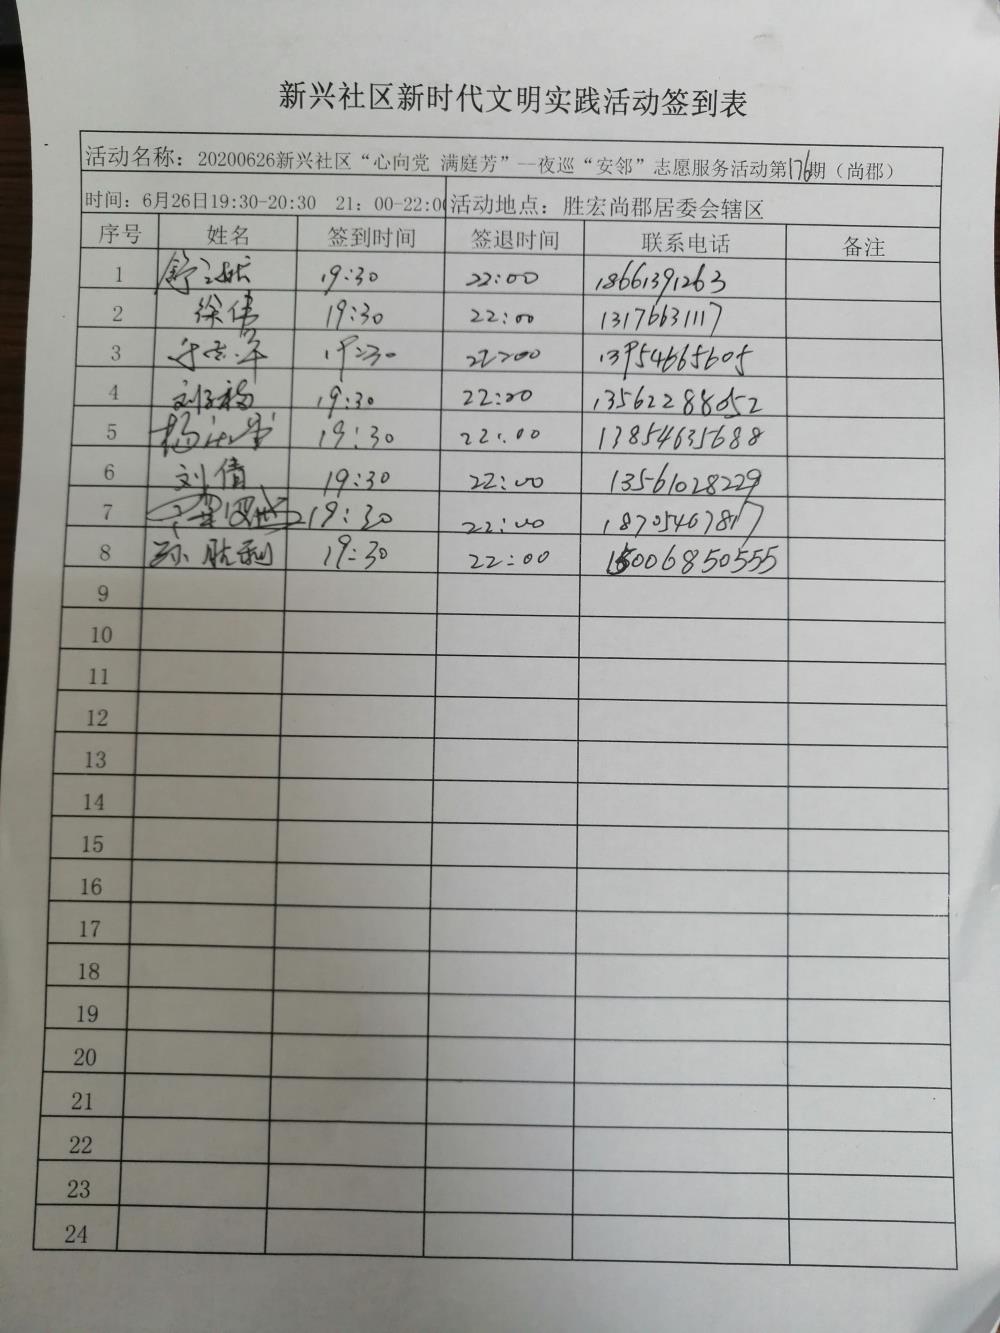 新兴社区新时代文明实践活动签到表
活动名称：20200626新兴社区“心向党 满庭芳”—夜巡“安邻”志愿服务活动第176期（尚郡）
时间：6月26日19:30-20:30 21：00-22:00 活动地点：胜宏尚郡居委会辖区
序号 姓名 签到时间 签退时间 联系电话 备注
1 19:30 22:00 18661391263
2 徐伟 19:30 22:00 13176631117
3 19:30 22:00 13954665605
4 19:30 22:00 13562288052
5 19:30 22:00 13854635688
6 刘倩 19:30 22:00 13561028229
7 19:30 22:00 18705467817
8 孙胜利 19:30 22:00 15006850555
9
10
11
12
13
14
15
16
17
18
19
20
21
22
23
24